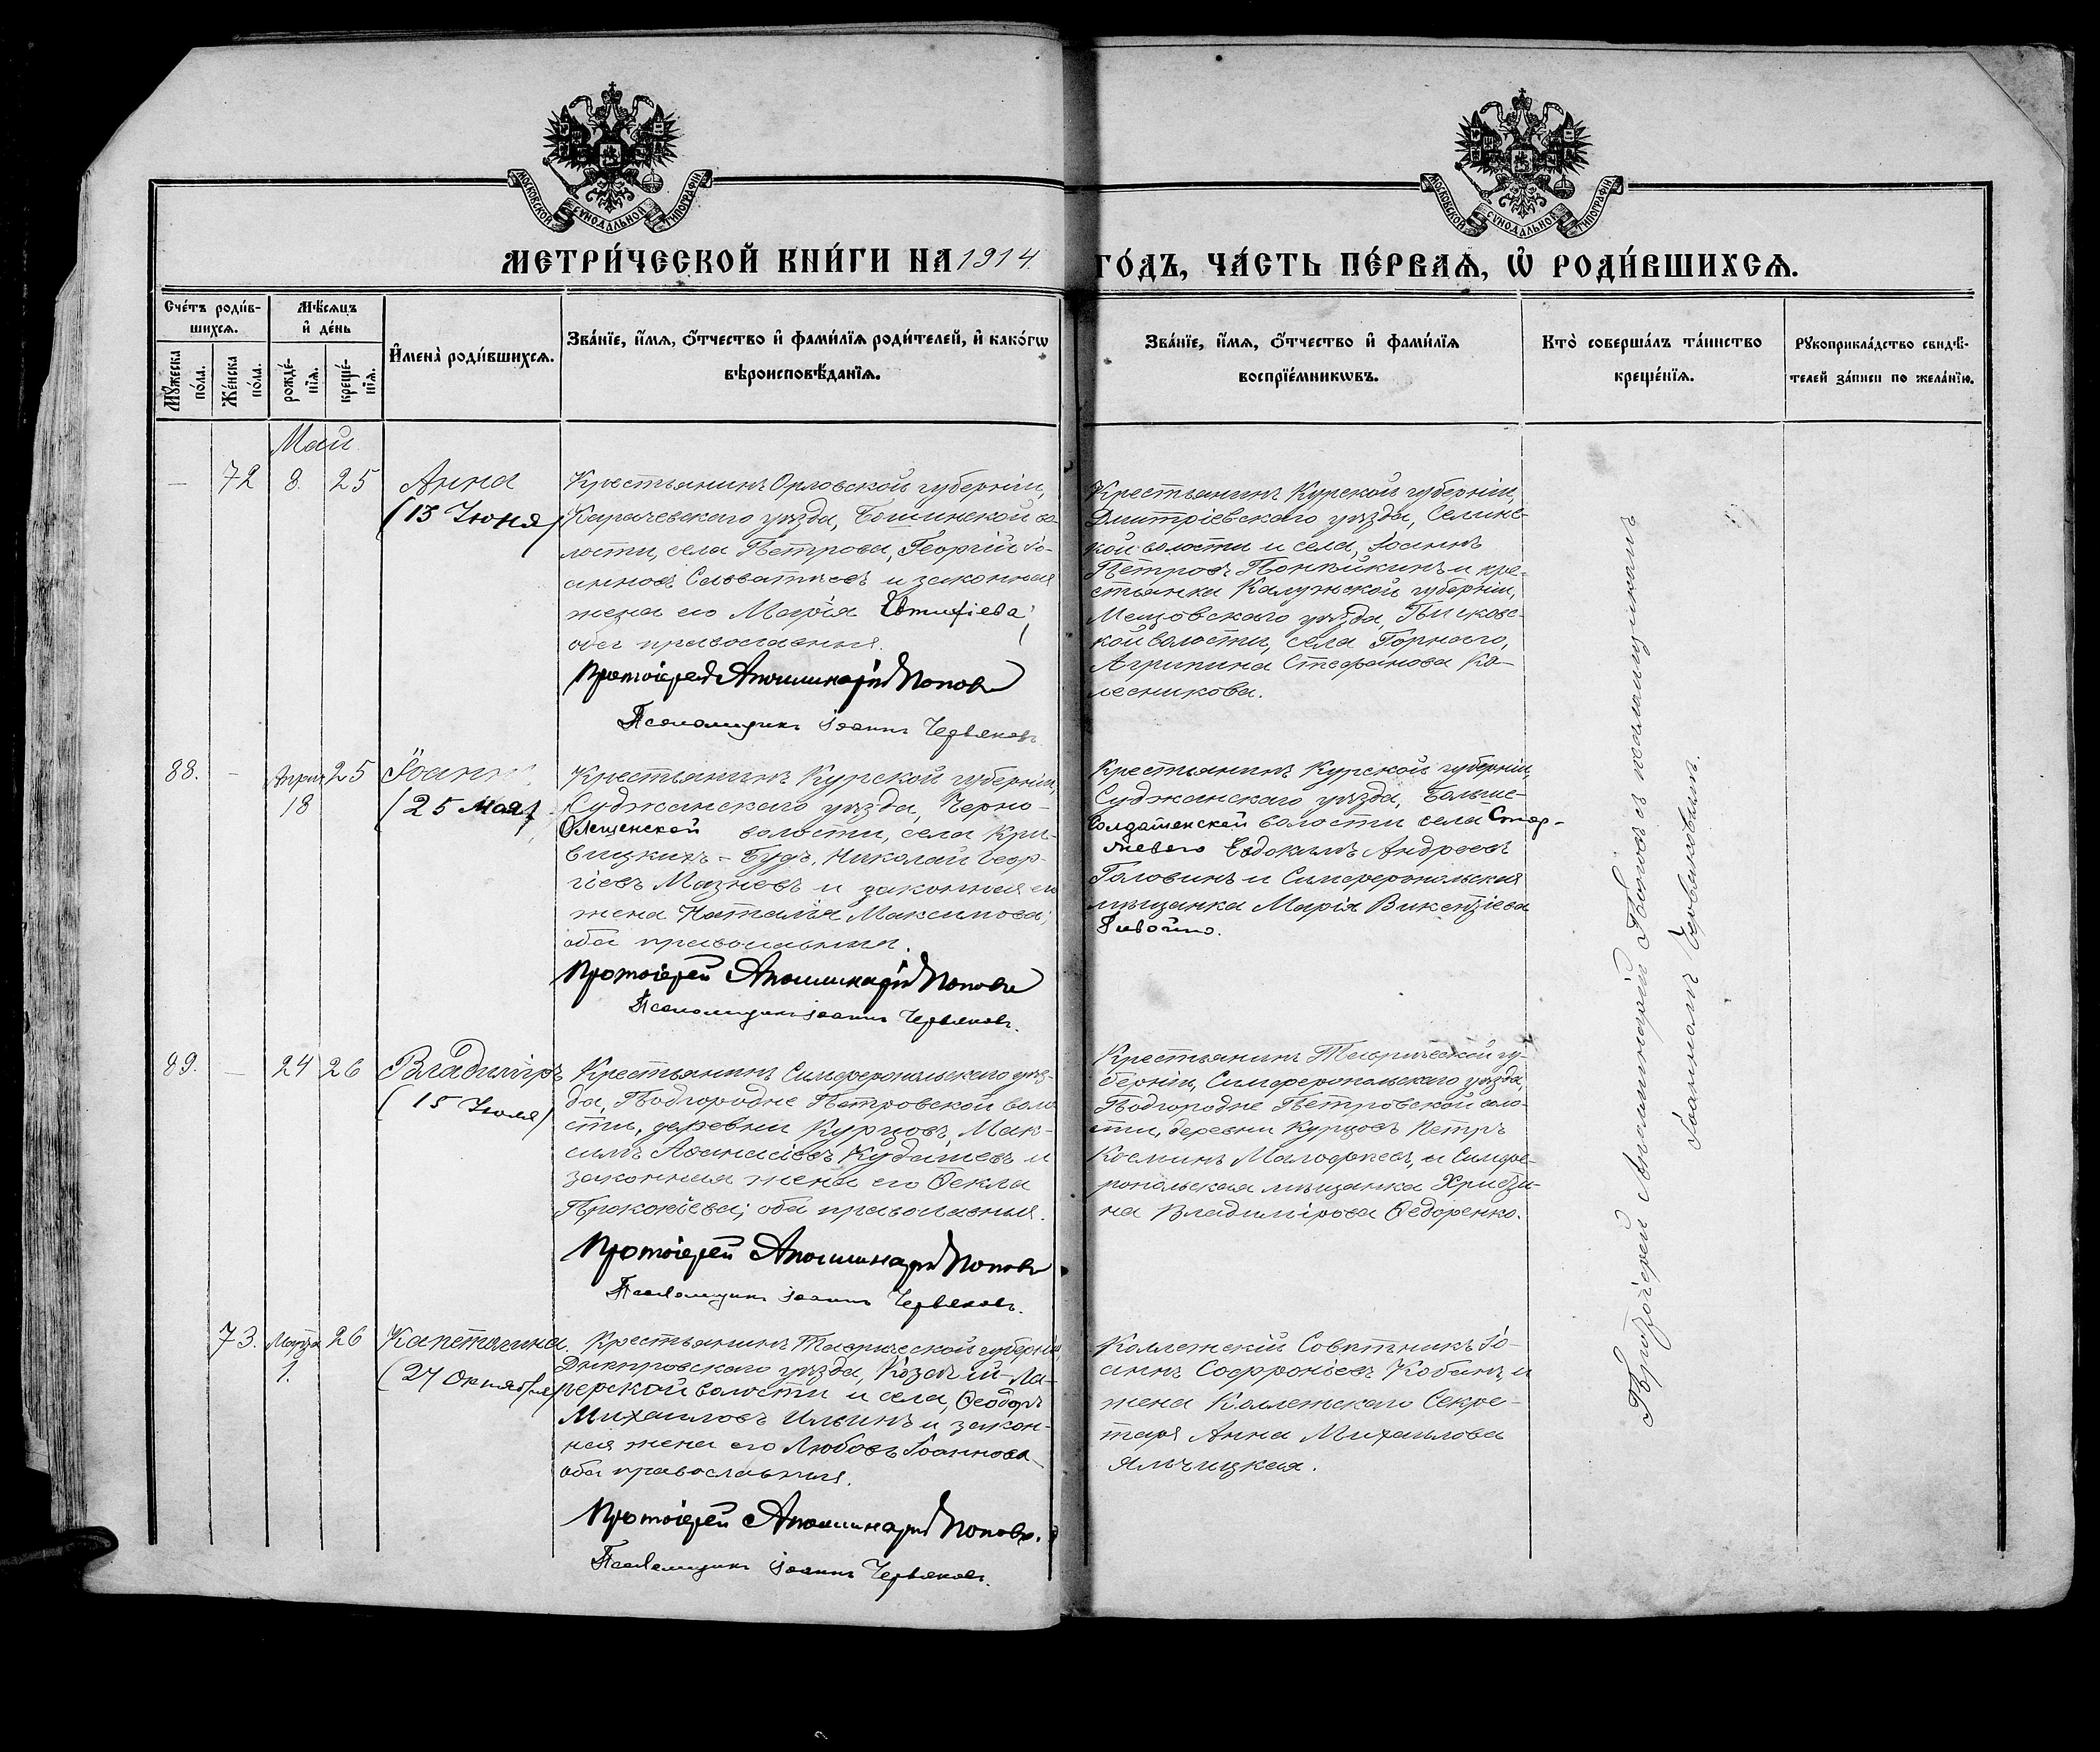 МОСКОВСКОЙ СѴНОДАЛЬНОЙ ТИПОГРАФІИ
МОСКОВСКОЙ СѴНОДАЛЬНОЙ ТИПОГРАФІИ
МЕТРИ́ЧЕСКОЙ КНИ́ГИ НА 1914 ГО́ДЪ, ЧА́СТЬ ПЕ́РВАѦ, Ѡ҆ РОДИ́ВШИХСѦ.
Сче́тъ роди́в-
шихсѧ.
Мꙋ́жеска
по́ла.
Же́нска
по́ла.
Мѣ́сѧцъ
и҆ де́нь
рожде́-
нїѧ.
креще́-
нїѧ.
И҆мена̀ роди́вшихсѧ.
Зва́нїе, и҆́мѧ, ѻ҆́тчество и҆ фами́лїѧ роди́телей, и҆ како́гѡ
вѣроисповѣ́данїѧ.
Зва́нїе, и҆́мѧ, ѻ҆́тчество и҆ фами́лїѧ
воспрїе́мникѡвъ.
Кто̀ соверша́лъ та́инство
креще́нїѧ.
Рꙋкоприкла́дство свидѣ́-
телей за́писи по жела́нїю.
Май
— 72 8. 25 Анна
(13 Іюня)
Крестьянинъ Орловской губерніи,
Карачевскаго уѣзда, Бошинской во-
лости, села Петрова, Георгій Іо-
анновъ Савватѣевъ и законная
жена его Марія Евтихіева;
оба православныя.
Протоіерей Аполлинарій Поповъ
Псаломщикъ Іоаннъ Червяковъ
Крестьянинъ Курской губерніи,
Дмитріевскаго уѣзда, Селинс-
кой волости и села, Іоаннъ
Петровъ и кре-
стьянка Калужской губерніи,
Мещовскаго уѣзда,
кой волости, села Горнаго,
Агрипина Стефанова Ко-
лесникова.
88. — Апрѣл 25 Іоаннъ
18 (25 Мая)
Крестьянинъ Курской губерніи,
Суджанскаго уѣзда, Черно-
Олешенской волости, села Кри-
вицкихъ-Будъ, Николай Геор-
гіевъ Мазневъ и законная его
жена Наталія Максимова;
оба православныя.
Протоіерей Аполлинарій Поповъ
Псаломщикъ Іоаннъ Червяковъ.
Крестьянинъ Курской губерніи,
Суджанскаго уѣзда, Больше-
Солдатенской волости села
Евдокимъ Андреевъ
Головинъ и Симферопольская
мѣщанка Марія Викентіева
89. — 24 26 Владиміръ
(15 Іюля)
Крестьянинъ Симферопольскаго уѣз-
да, Подгородне Петровской воло
сти, деревни Курцовъ, Мак-
симъ Аѳанасіевъ Кудашевъ и
законная жена его Ѳекла
Прокопіева; оба православныя.
Протоіерей Аполлинарій Поповъ
Псаломщикъ Іоаннъ Червяковъ.
Крестьянинъ Таврической гу-
берніи, Симферопольскаго уѣзда,
Подгородне Петровской воло-
сти, деревни Курцовъ Петръ
Косминъ и Симфе-
ропольская мѣщанка Христи-
на Владимірова Ѳедоренко.
73. Марта 26 Капетолина.
1. (27 Октября)
Крестьянинъ Таврической губерніи,
Днѣпровскаго уѣзда, Козачьи-Ла-
герской волости и села, Ѳеодоръ
Михаиловъ Ильинъ и закон-
ная жена его Любовь Іоаннова
оба православныя.
Протоіерей Аполлинарій Поповъ.
Псаломщикъ Іоаннъ Червяковъ.
Коллежскій Совѣтникъ Іо-
аннъ Софроніевъ Кобанъ и
жена Коллежскаго Секре-
таря Анна Михаилова
Ялчицкая.
Протоіерей Аполлинарій Поповъ съ псаломщикомъ
Іоанномъ Червяковымъ.